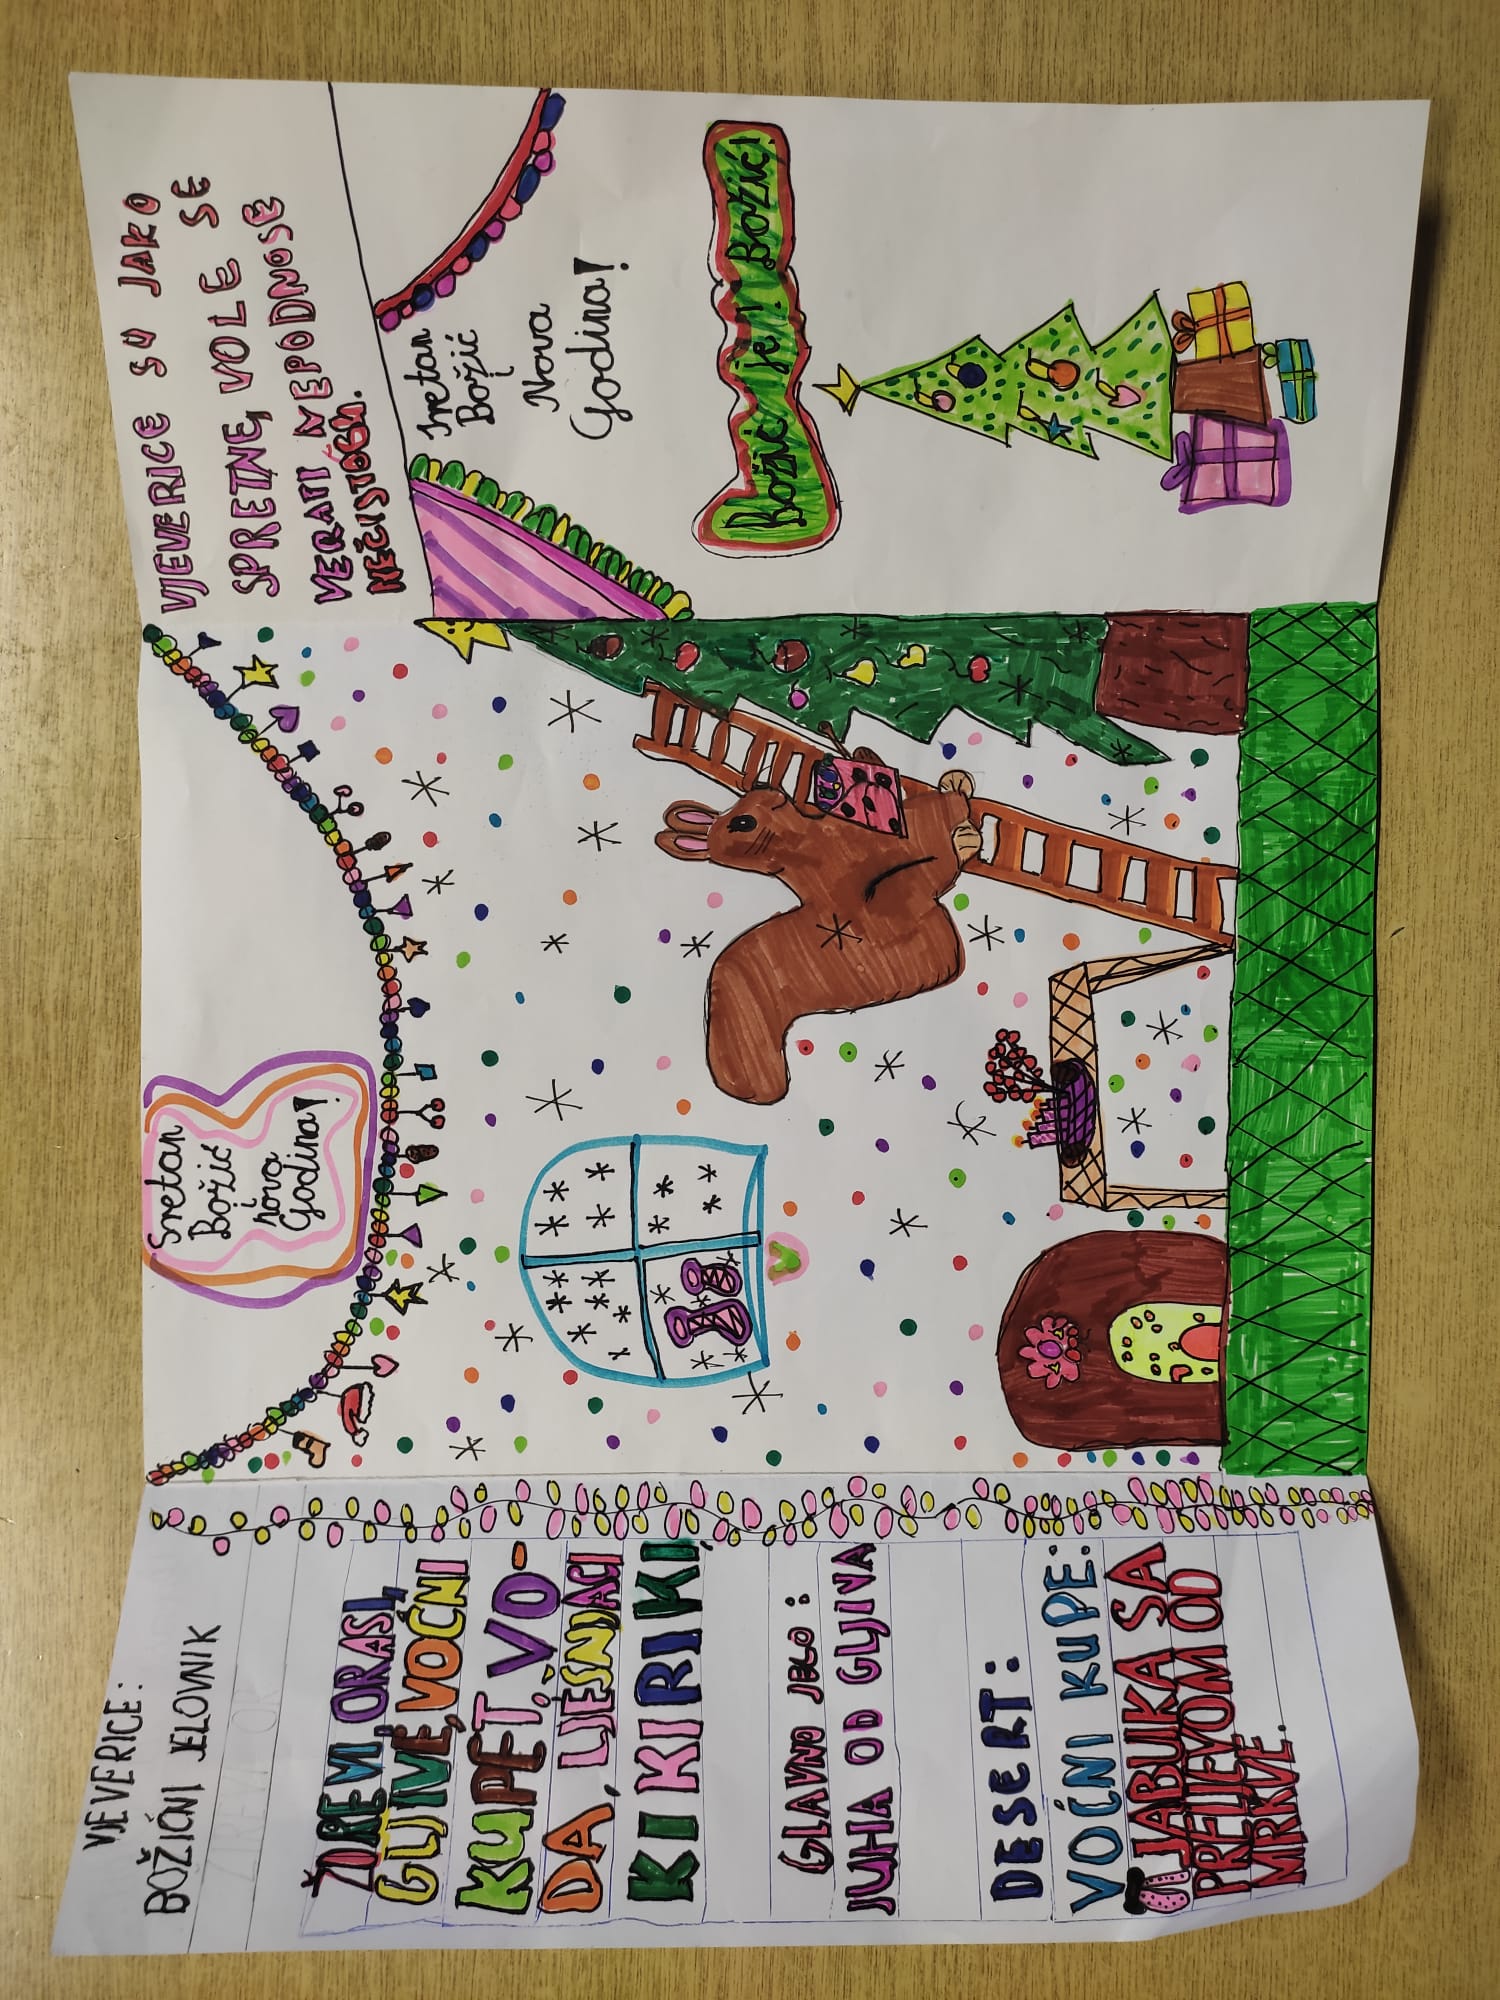 VJEVERICE:
BOŽIČNI JELOVNIK
ŽIREVI, ORASI,
GLJIVE, VOĆNI
KUPĖT, VO-
DA, LJEŠNJACI
KIKIRIKI,
GLAVNO JELO:
JUHA OD GLJIVA
DESERT:
VOĆNI KUPE:
JABUKA SA
PRELJEVOM OD
MRKVE.
Sretan
Božić
i
nova
Godina!
VJEVERICE SU JAKO
SPRETNE, VOLE SE
VERATI NEPODNOSE
NEČISTOĆU.
Sretan
Božić
i
Nova
Godina!
Božić je! Božić!